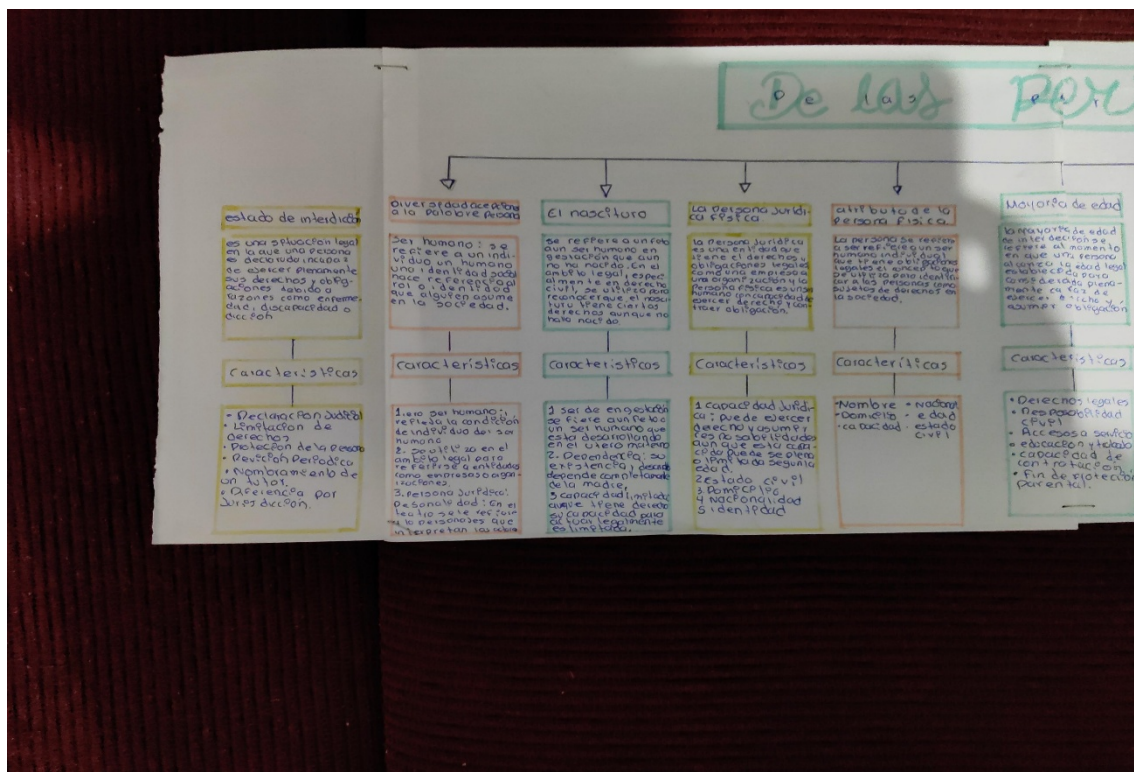 De las per
estado de interdicción
es una situación legal
en la que una persona
es declarada incapas
de ejercer plenamente
sus derechos y oblig-
aciones tabido a
razones como enferme-
dad, discapacidad o
dicción
Caracteristicas
• Declaración Judicial
• Limitacion de
derechos
• Protecion de la persona
• Revicion Periodica
• Nombramiento de
un tutor.
• Diferencia por
Jurisdiccion.
Diversidad acepciones
a la palabra persona
Ser humano: se
refiere a un indi-
viduo un humano
una identidad social
hace referencia al
rol o identidad
que alguien asume
en la sociedad.
Caracteristicas
ser humano:
refleja la condición
de individuo del ser
humano
2. se utiliza en el
ambito legal para
referirse a entidades
como empresas o organ-
izaciones.
3. persona Juridica:
Pesonalidad: En el
teatro se le refiere
a lo personajes que
interpretan los
El nascituro
se refiere a un feto
a un ser humano en
gestación que aun
no na nacido. En el
ambito legal, espec-
almente en derecho
civil, se utiliza para
reconocer que el nasci-
turu tiene ciertas
derechos aunque no
haba nacido.
Caracteristicas
1 ser de en gestación
se fiere a un feto o
un ser humano que
esta desarrollando
en el utero materno
2. Dependencia: su
existencia
depende completamente
de la madre,
3 capacidad limitada
auque tiene derecho
su capacidad para
actuar legalmente
es limitada.
La persona Juridi-
ca Fisica
la persona Juridica
es una entidad que
tiene el derechos y
obligaciones legales
como una empresa o
una organización y la
persona fisica es un ser
humano con capacidad de
ejercer derecho y con-
traer obligación.
Caracteristicas
1 capacidad Juridi-
ca: puede ejercer
derecho y asumir
responsabilidades
aun que esta capa-
cidad puede se plena
o limitada según la
edad.
2 estado civil
3 Domicilio
4 Nacionalidad
5 identidad
atributo de la
persona Fisica
La persona se refiere
a ser refiere un ser
humano individual
que tiene obligaciones
legales el
se utiliza para identifi-
car a las personas como
sujetos de derechos en
la sociedad.
Caracteríticas
•Nombre • Nacional
•Domicilio • edad
•capacidad • estado
civil
Mayoria de edad
la mayoria de edad
de interdicción se
refire al momento
en que una persona
alcanza la edad legal
establecida para
considerada plena-
mente capas de
ejercer derecho y
asumir obligación
Caracteristicas
• Derechos legales
• Resposabilidad
civil
• Accesos a servicio
• educación y
• capacidad de
contratación.
• Fin de protección
parental.